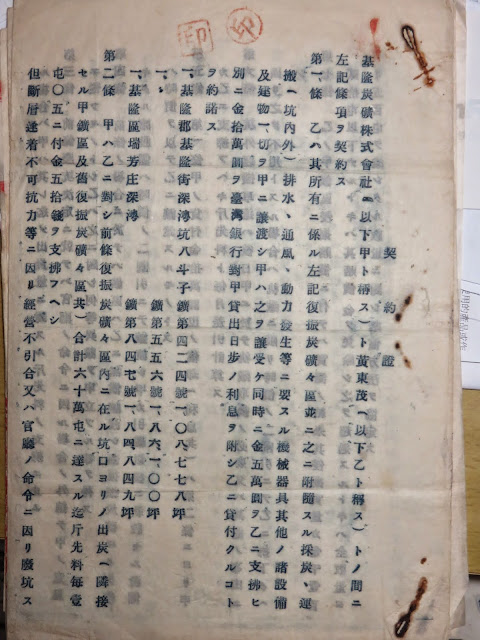 契約證
基隆炭礦株式會社(以下甲ト稱ス)ト黃東茂(以下乙ト稱ス)トノ間ニ
左記條項ヲ契約ス
第一條 乙ハ其所有ニ係ル左記復振炭礦々區並ニ之ニ附隨スル採炭、運
搬(坑內外)排水、通風、動力發生等ニ要スル機械器具其他ノ諸設備
及建物一切ヲ甲ニ讓渡シ甲ハ之ヲ讓受ケ同時ニ金五萬圓ヲ乙ニ支拂ヒ
別ニ金拾萬圓ヲ臺灣銀行對甲貸出日步ノ利息ヲ附シ乙ニ貸付クルコト
ヲ約諾ス
一、基隆郡基隆街深澳坑八斗子 鑛第四二四號一、〇八七、七七八坪
一、 鑛第五五六號一、八六一、〇〇坪
一、基隆區瑞芳庄深澳 鑛第八四七號一、八四八四九坪
第二條 甲ハ乙ニ對シ前條復振炭礦々區內ニ在ル坑口ヨリノ出炭(隣接
セル甲鑛區及舊復振炭礦々區共)合計六十萬屯ニ達スル迄斤先料每壹
屯〇五ニ付金五拾錢ヲ支拂フヘシ
但斷層逢着不可抗力等ニ因リ經營不引合又ハ官廳ノ命令ニ因リ廢坑ス
印
印